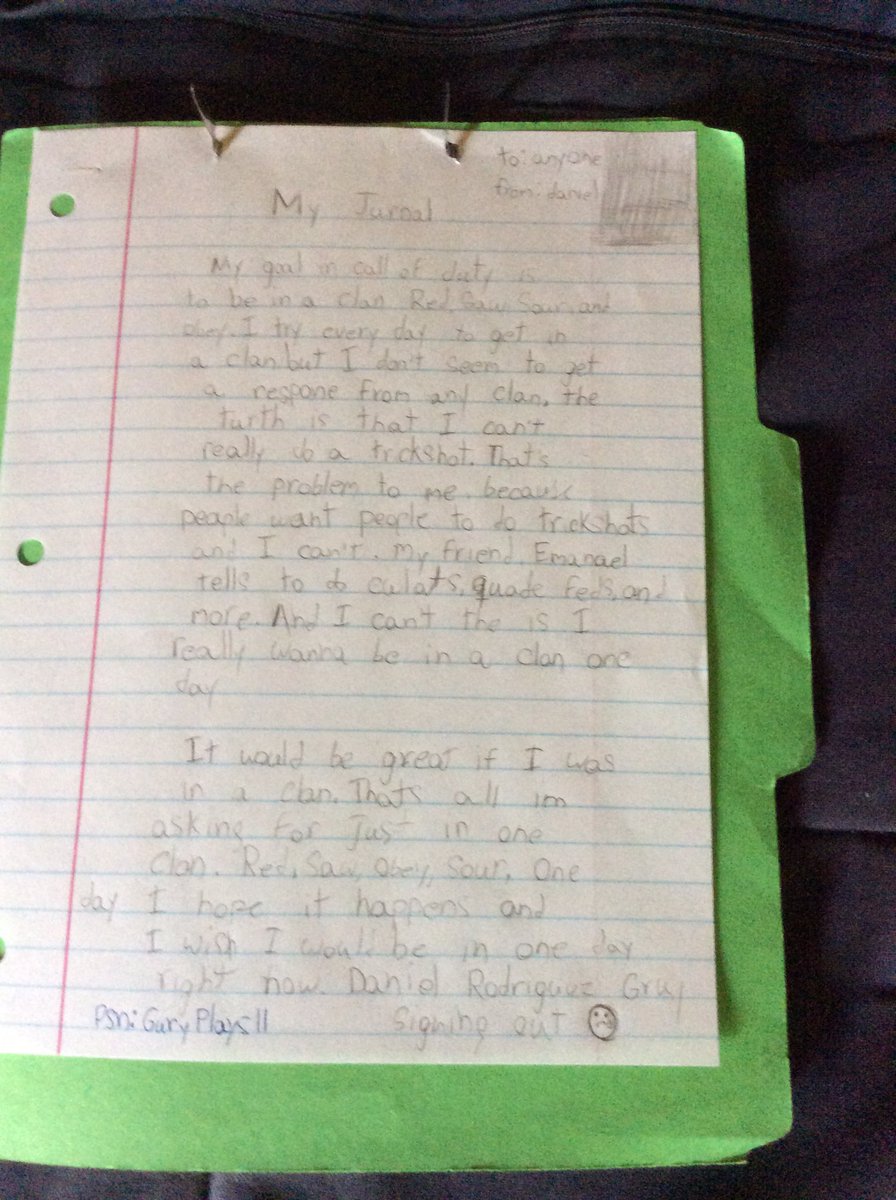 to: anyone
from: daniel
My Jurnal
My goal in call of duty is
to be in a clan Red, Saw, Sour, and
obey. I try every day to get in
a clan but I don't seem to get
a respone from any clan. the
turth is that I can't
really do a trickshot. That's
the problem to me. becaus
people want people to do trickshots
and I can't. My friend, Emanael
tells to do culats, quade feds, and
more. And I can't the is I
really wanna be in a clan one
day
It would be great if I was
in a clan. Thats all im
asking for just in one
clan. Red, Saw, Obey, Sour, One
day I hope it happens and
I wish I would be in one day
right now. Daniel Rodriguez
Psn: Gary Plays11 Signing out